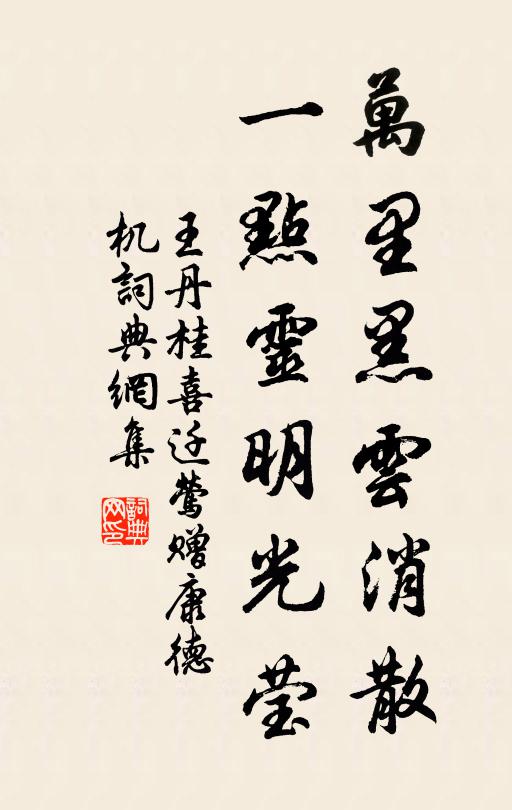 萬里黑雲消散
一點靈明光莹
王丹桂喜迁鶯赠康德
机詞典網集
詞典
网印